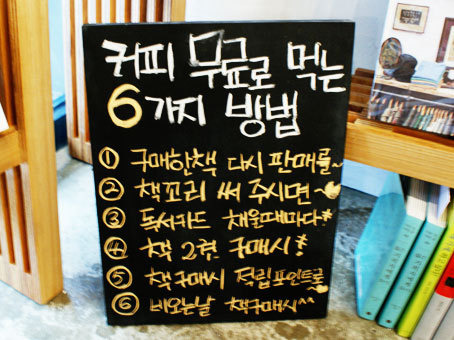 커피 무료로 먹는
6가지 방법
① 구매한책 다시 판매를~
② 책꼬리 써 주시면~
③ 독서카드 채울때마다*
④ 책 2권 구매시!
⑤ 책구매시 적립포인트로
⑥ 비오는날 책구매시^^